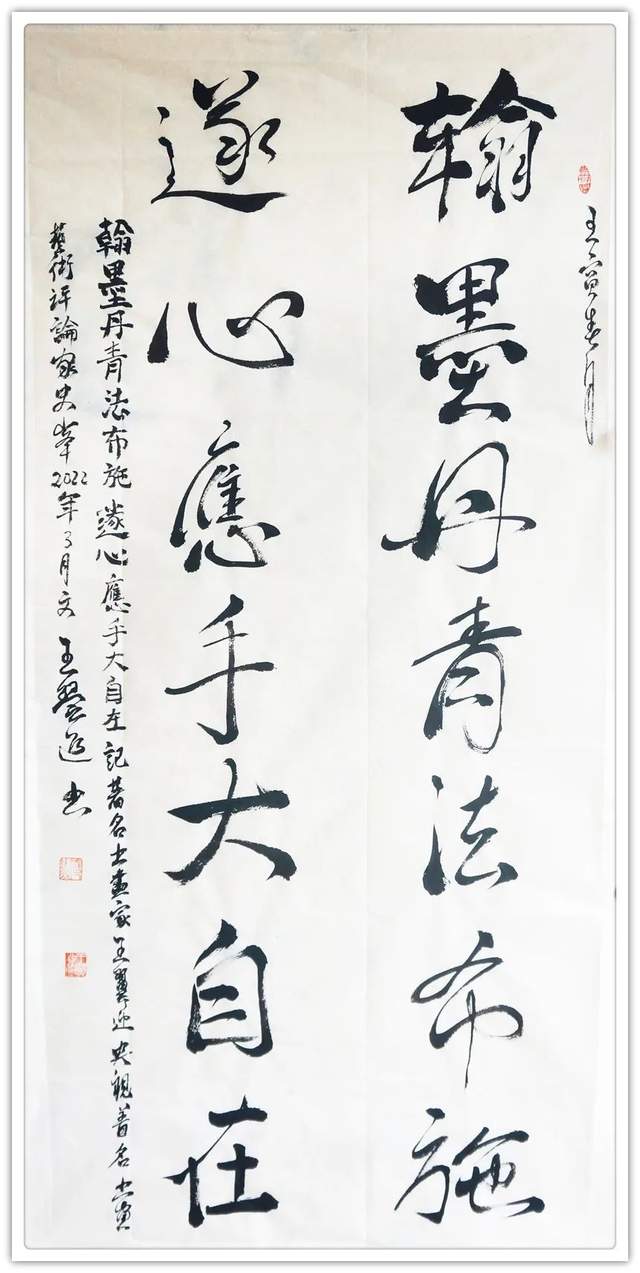 壬寅春月
翰墨丹青法布施
遂心應手大自在
翰墨丹青法布施 遂心應手大自在 記著名书画家王翼迎 央視著名书画
藝術評論家史峯2022年3月文 王翼迎书